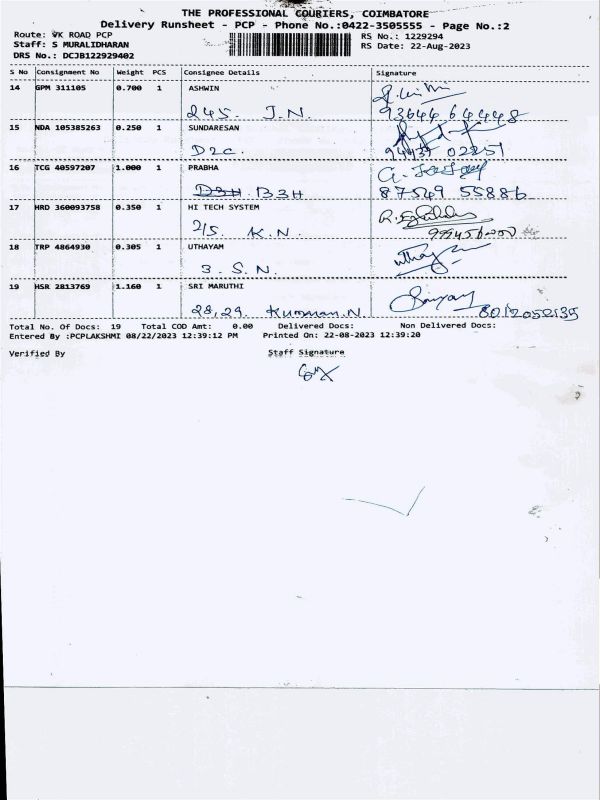 THE PROFESSIONAL COURIERS, COIMBATORE
Delivery Runsheet - PCP - Phone No.:0422-3505555 - Page No.:2
Route: VK ROAD PCP
RS No.: 1229294
Staff: S MURALIDHARAN
RS Date: 22-Aug-2023
DRS No.: DCJB122929402
S No Consignment No Weight PCS Consignee Details Signature
14 GPM 311105 0.700 1 ASHWIN
245. J.N. 93644 64448
15 NDA 105385263 0.250 1 SUNDARESAN
D2C. 94437 02251
16 TCG 40597207 1.000 1 PRABHA
D3H B3H 87549 55886
17 HRD 360093758 0.350 1 HI TECH SYSTEM
2/5. K.N.
18 TRP 4864930 0.305 1 UTHAYAM
3. S.N. uthay
19 HSR 2813769 1.160 1 SRI MARUTHI
28,29. N. 8012052135
Total No. Of Docs: 19 Total COD Amt: 0.00 Delivered Docs: Non Delivered Docs:
Entered By :PCPLAKSHMI 08/22/2023 12:39:12 PM Printed On: 22-08-2023 12:39:20
Verified By Staff Signature